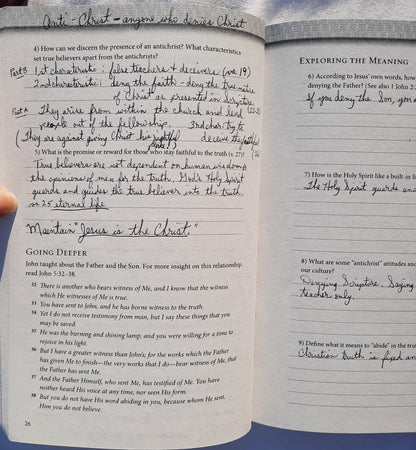 Anti-Christ - anyone who denies Christ
4) How can we discern the presence of an antichrist? What characteristics
set true believers apart from the antichrists?
Part B 1st characteristic: false teachers & deceivers (vs. 19)
2nd characteristic: deny the faith - deny the true nature
of Christ as presented in Scripture
Part A They arise from within the church and lead (22-23)
people out of the fellowship. 3rd char: try to
(They are against giving Christ his rightful deceive the faithful
place!) (26)
5) What is the promise or reward for those who stay faithful to the truth (v. 27)?
True believers are not dependent on human wisdom &
the opinions of men for the truth. God's Holy Spirit
guards and guides the true believer into the truth.
vs 25 eternal life
Maintain "Jesus is the Christ."
GOING DEEPER
John taught about the Father and the Son. For more insight on this relationship,
read John 5:32–38.
32 There is another who bears witness of Me, and I know that the witness
which He witnesses of Me is true.
33 You have sent to John, and he has borne witness to the truth.
34 Yet I do not receive testimony from man, but I say these things that you
may be saved.
35 He was the burning and shining lamp, and you were willing for a time to
rejoice in his light.
36 But I have a greater witness than John's; for the works which the Father
has given Me to finish—the very works that I do—bear witness of Me, that
the Father has sent Me.
37 And the Father Himself, who sent Me, has testified of Me. You have
neither heard His voice at any time, nor seen His form.
38 But you do not have His word abiding in you, because whom He sent,
Him you do not believe.
26
EXPLORING THE MEANING
6) According to Jesus' own words, how
denying the Father? (See also 1 John 2:
If you deny the Son, you
7) How is the Holy Spirit like a built-in l
The Holy Spirit guards and
8) What are some "antichrist" attitudes and
our culture?
Denying Scripture. Saying
teacher only.
9) Define what it means to "abide" in the tru
Christian truth is fixed an